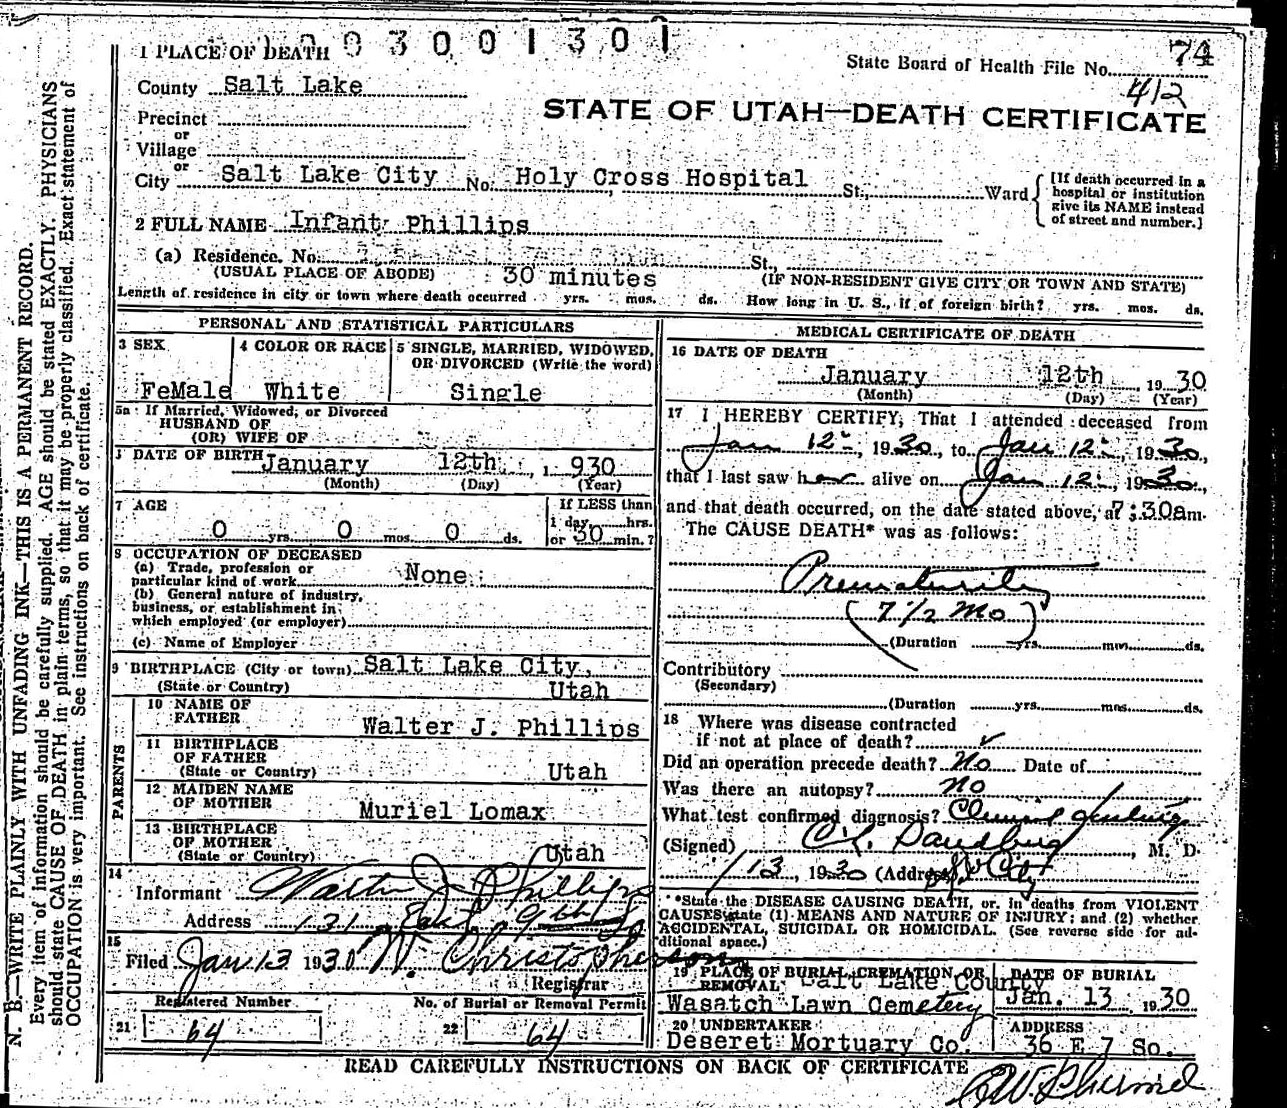 003001301
1 PLACE OF DEATH
State Board of Health File No. 74
412
County Salt Lake
STATE OF UTAH—DEATH CERTIFICATE
Precinct
or
Village
or
City Salt Lake City No. Holy Cross Hospital St., Ward
[If death occurred in a
hospital or institution
give its NAME instead
of street and number.]
2 FULL NAME Infant Phillips
(a) Residence. No. St.,
(USUAL PLACE OF ABODE) 30 minutes (IF NON-RESIDENT GIVE CITY OR TOWN AND STATE)
Length of residence in city or town where death occurred yrs. mos. ds. How long in U. S., if of foreign birth? yrs. mos. ds.
PERSONAL AND STATISTICAL PARTICULARS
3 SEX 4 COLOR OR RACE 5 SINGLE, MARRIED, WIDOWED,
OR DIVORCED (Write the word)
FeMale White Single
5a If Married, Widowed, or Divorced
HUSBAND OF
(OR) WIFE OF
DATE OF BIRTH January 12th, 1930
(Month) (Day) (Year)
7 AGE If LESS than
1 day hrs.
0 yrs. 0 mos. 0 ds. or 30 min.?
8 OCCUPATION OF DECEASED
(a) Trade, profession or
particular kind of work None
(b) General nature of industry,
business, or establishment in
which employed (or employer)
(c) Name of Employer
9 BIRTHPLACE (City or town) Salt Lake City,
(State or Country) Utah
PARENTS
10 NAME OF
FATHER Walter J. Phillips
11 BIRTHPLACE
OF FATHER
(State or Country) Utah
12 MAIDEN NAME
OF MOTHER Muriel Lomax
13 BIRTHPLACE
OF MOTHER
(State or Country) Utah
14
Informant Walter J Phillips
Address 131 East 9th So
15
Filed Jan 13 1930 W. Christopherson
Registrar
Registered Number No. of Burial or Removal Permit
21 64 22 64
MEDICAL CERTIFICATE OF DEATH
16 DATE OF DEATH
January 12th, 1930
(Month) (Day) (Year)
17 I HEREBY CERTIFY, That I attended deceased from
Jan 12, 1930, to Jan 12, 1930,
that I last saw her alive on Jan 12, 1930,
and that death occurred, on the date stated above, at 7:30am.
The CAUSE DEATH* was as follows:
Prematurity
(7 1/2 Mo)
(Duration yrs. mos. ds.
Contributory
(Secondary)
(Duration yrs. mos. ds.
18 Where was disease contracted
if not at place of death? ✓
Did an operation precede death? No Date of
Was there an autopsy? no
What test confirmed diagnosis?
(Signed) M. D.
1/13, 1930 (Address) City
*State the DISEASE CAUSING DEATH, or, in deaths from VIOLENT
CAUSES state (1) MEANS AND NATURE OF INJURY; and (2) whether
ACCIDENTAL, SUICIDAL OR HOMICIDAL. (See reverse side for ad-
ditional space.)
19 PLACE OF BURIAL, CREMATION OR DATE OF BURIAL
REMOVAL Salt Lake County
Wasatch Lawn Cemetery Jan. 13 1930
20 UNDERTAKER ADDRESS
Deseret Mortuary Co. 36 E 7 So.
READ CAREFULLY INSTRUCTIONS ON BACK OF CERTIFICATE
N. B.—WRITE PLAINLY WITH UNFADING INK—THIS IS A PERMANENT RECORD.
Every item of information should be carefully supplied. AGE should be stated EXACTLY. PHYSICIANS
should state CAUSE OF DEATH in plain terms, so that it may be properly classified. Exact statement of
OCCUPATION is very important. See instructions on back of certificate.